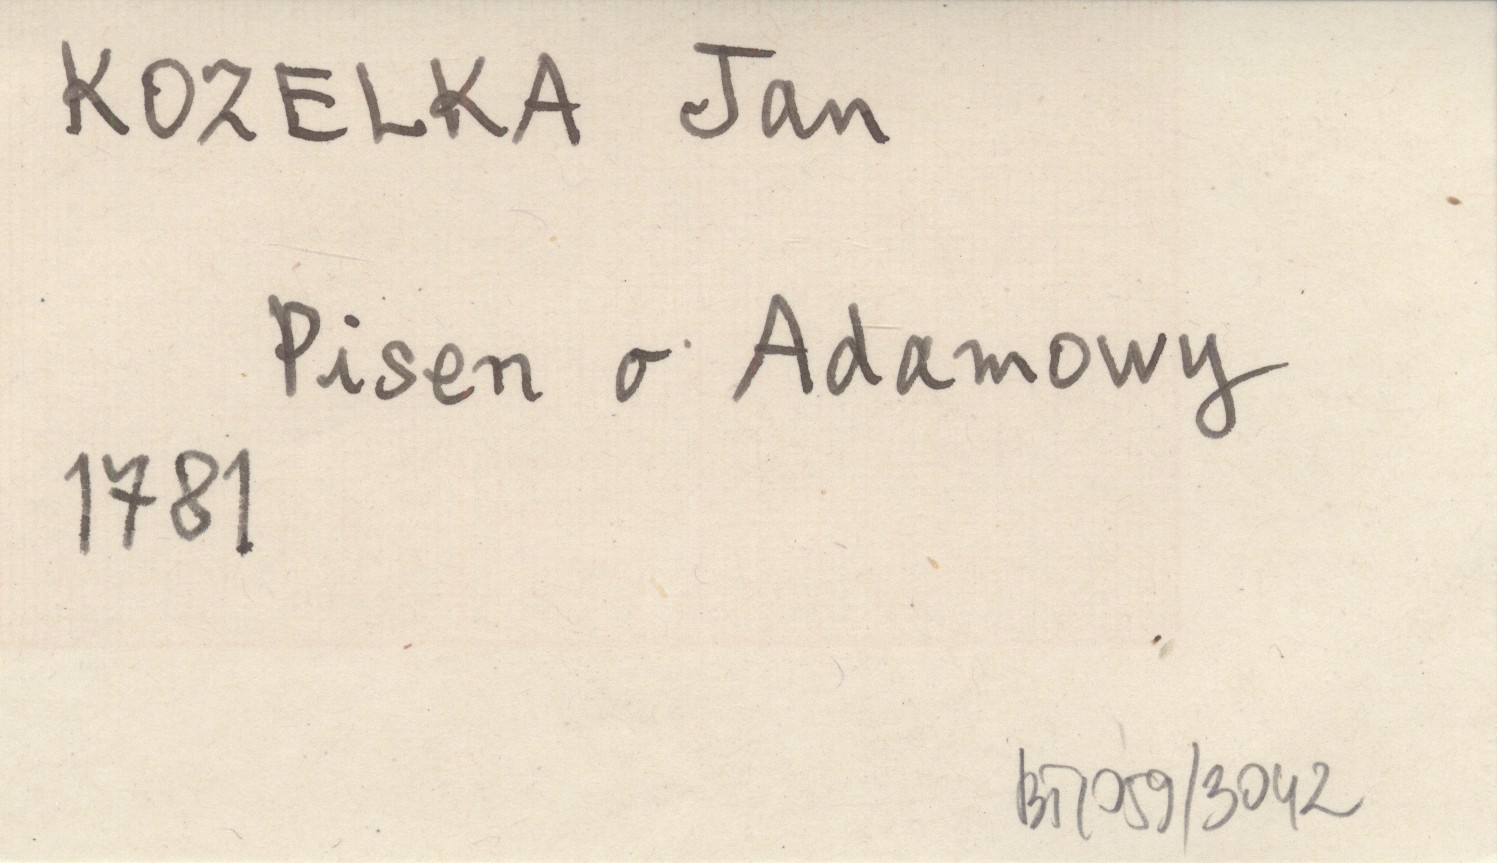 KOZELKA Jan
Pisen o Adamowy
1781
BT/059/3042